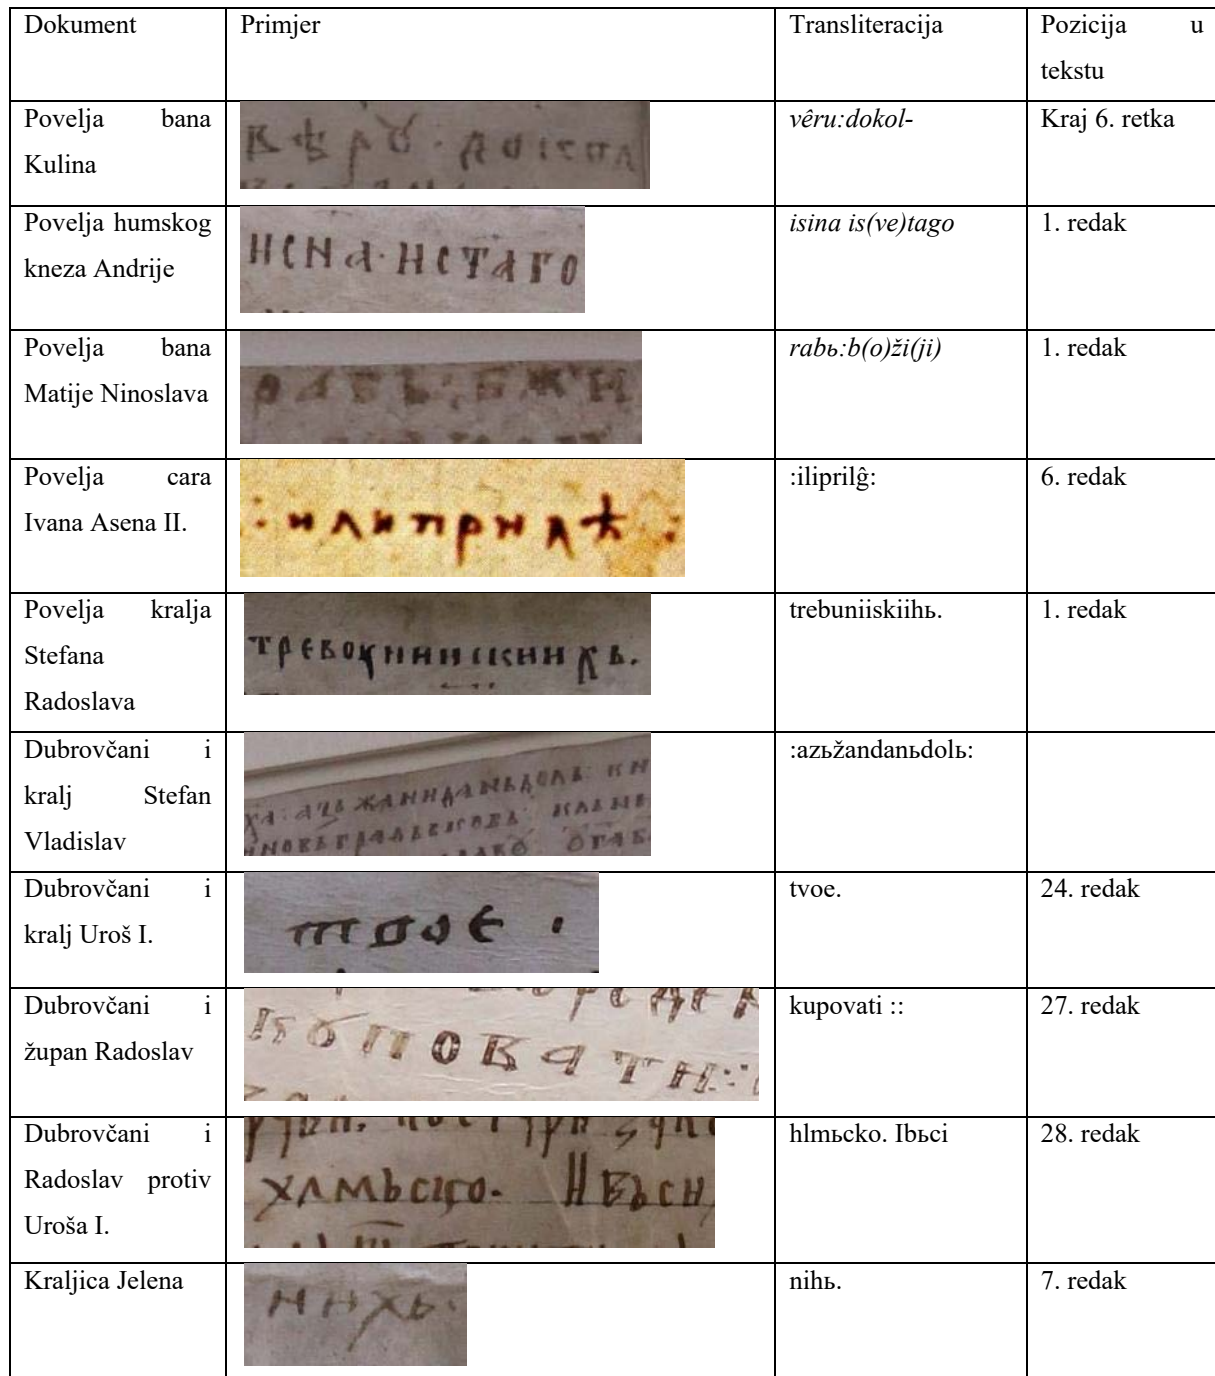 Dokument Primjer Transliteracija Pozicija u
tekstu
Povelja bana
Kulina
вѣрꙋ · докол
vêru:dokol-
Kraj 6. retka
Povelja humskog
kneza Andrije
исна · истаго
isina is(ve)tago
1. redak
Povelja bana
Matije Ninoslava
рабь : бжи
rabь:b(o)ži(ji)
1. redak
Povelja cara
Ivana Asena II.
: илиприлѣ :
:iliprilĝ:
6. redak
Povelja kralja
Stefana
Radoslava
требоуниискиихь.
trebuniiskiihь.
1. redak
Dubrovčani i
kralj Stefan
Vladislav
ха : азь жанидамьдоль : кн
:azьžandanьdolь:
Dubrovčani i
kralj Uroš I.
твоє ·
tvoe.
24. redak
Dubrovčani i
župan Radoslav
кꙋповати ::
kupovati ::
27. redak
Dubrovčani i
Radoslav protiv
Uroša I.
хлмьцко. Ивьси
hlmьcko. Ibьci
28. redak
Kraljica Jelena
нихь.
nihь.
7. redak